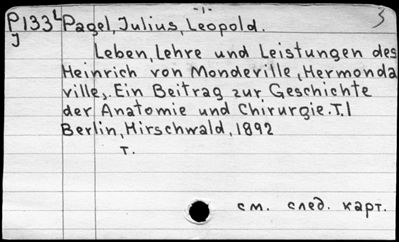 -1- 3
P133L Pagel, Julius, Leopold.
J
Leben, Lehre und Leistungen des
Heinrich von Mondeville, (Hermonda
ville). Ein Beitrag zur Geschichte
der Anatomie und Chirurgie. T. I
Berlin, Hirschwald, 1892
T.
см. след. карт.